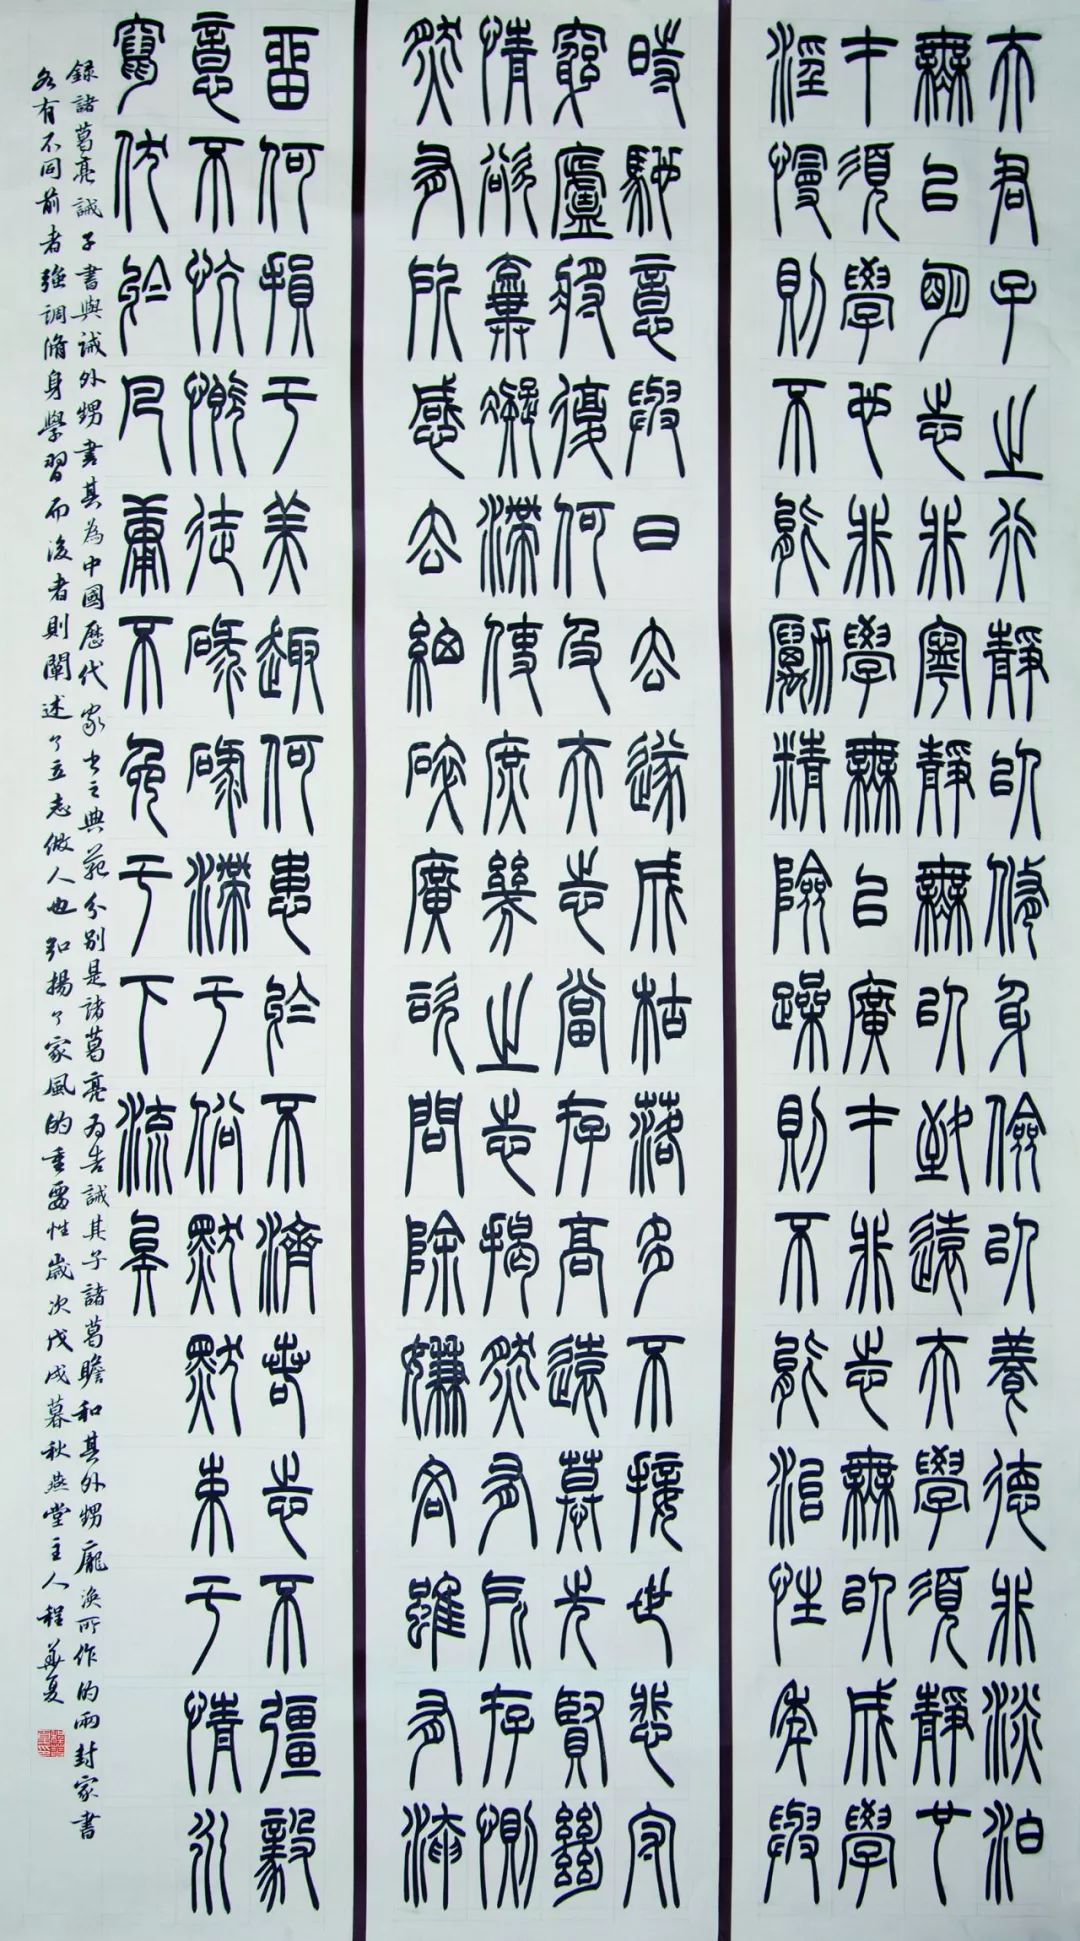 夫君子之行靜以修身儉以養德非淡泊
無以明志非寧靜無以致遠夫學須靜也
才須學也非學無以廣才非志無以成學
淫慢則不能勵精險躁則不能治性年與
時馳意與日去遂成枯落多不接世悲守
窮廬將復何及夫志當存高遠慕先賢絕
情欲棄凝滯使庶幾之志揭然有所存惻
然有所感去細碎廣咨問除嫌吝雖有淹
留何損于美趣何患於不濟若志不彊毅
意不忼慨徒碌碌滯于俗默默束于情永
竄伏於凡庸不免于下流矣
録諸葛亮誡子書與誡外甥書其為中國歷代家書之典範分別是諸葛亮為告誡其子諸葛瞻和其外甥龐渙所作的兩封家書
各有不同前者強調脩身學習而後者則闡述了立志做人也弘揚了家風的重要性歲次戊戌暮秋燕堂主人程華夏